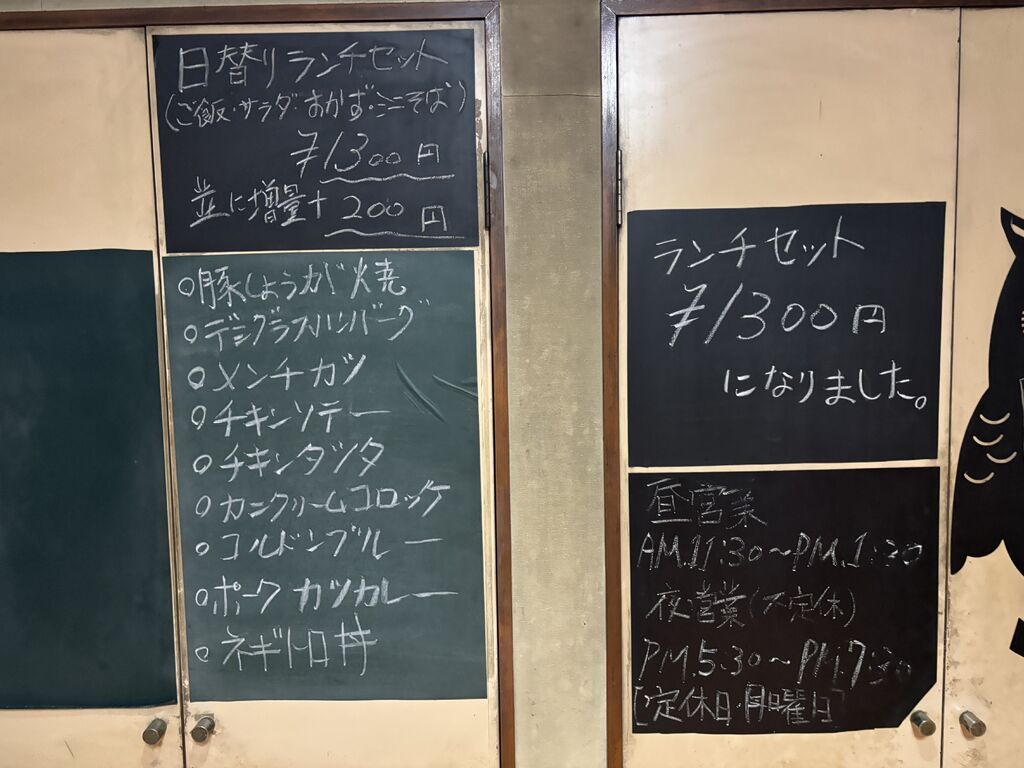 日替りランチセット
(ご飯・サラダ・おかず・ミニそば)
¥1300円
並に増量+200円
○豚しょうが焼
○デミグラスハンバーグ
○メンチカツ
○チキンソテー
○チキンタツタ
○カニクリームコロッケ
○コルドンブルー
○ポークカツカレー
○ネギトロ丼
ランチセット
¥1300円
になりました。
昼営業
AM.11:30~PM.1:30
夜営業(不定休)
PM.5:30~PM7:30
[定休日 月曜日]